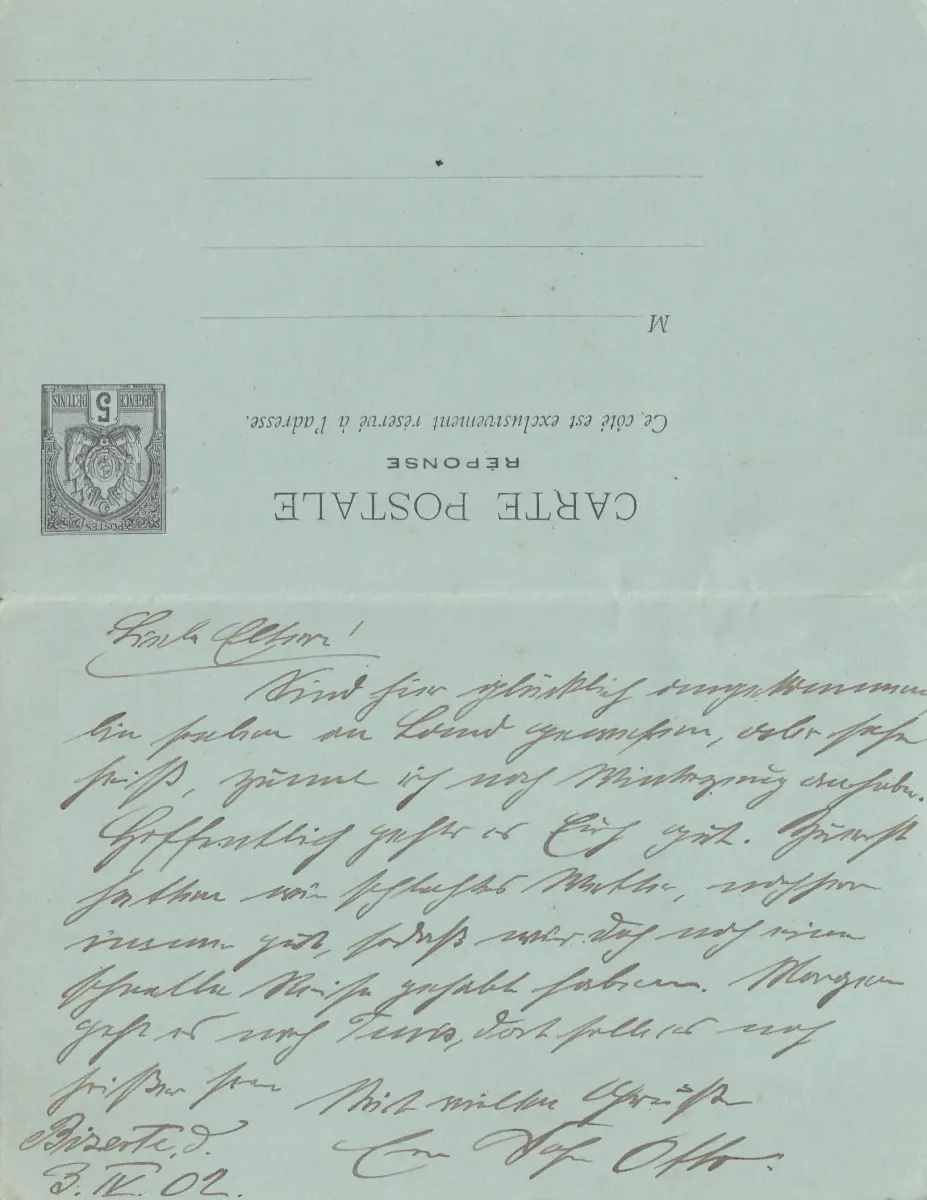 M
Ce côté est exclusivement réservé à l'adresse.
RÉPONSE
CARTE POSTALE
POSTES
REGENCE DE TUNIS
5
Liebe Eltern!
Sind hier glücklich angekommen,
bin soeben an Land gewesen, aber sehr
heiß, zumal ich noch Winterzeug anhabe.
Hoffentlich geht es Euch gut. Zuerst
hatten wir schlechtes Wetter, nachher
immer gut, sodaß wir doch noch eine
schnelle Reise gehabt haben. Morgen
geht es nach Tunis, dort soll es noch
heißer sein
Mit vielen Grüßen
Bizerte, d.
Euer Sohn Otto.
3. IV. 02.